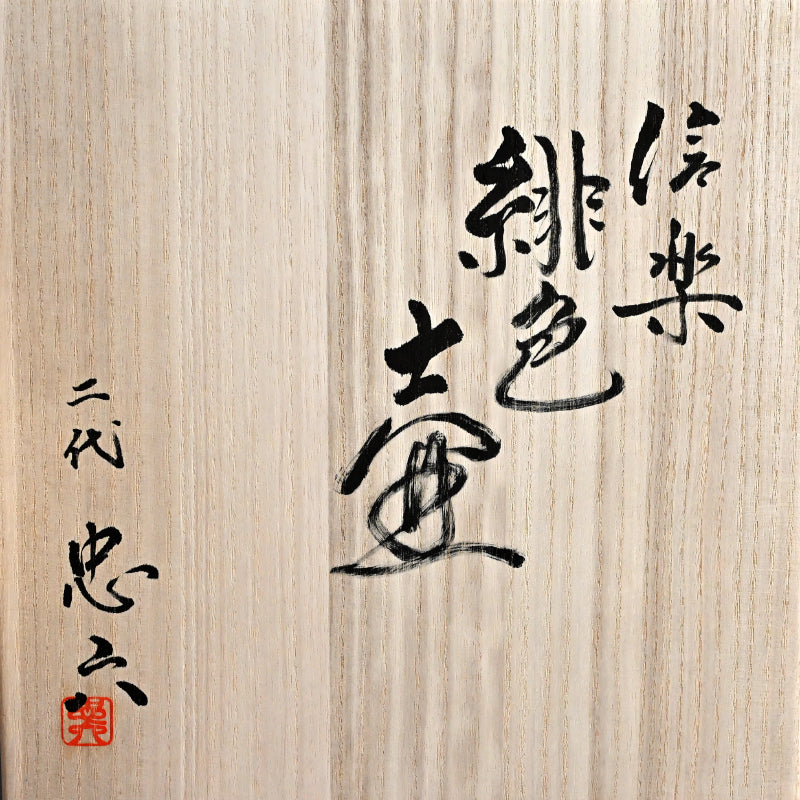 信楽
緋色
壷
二代 忠六